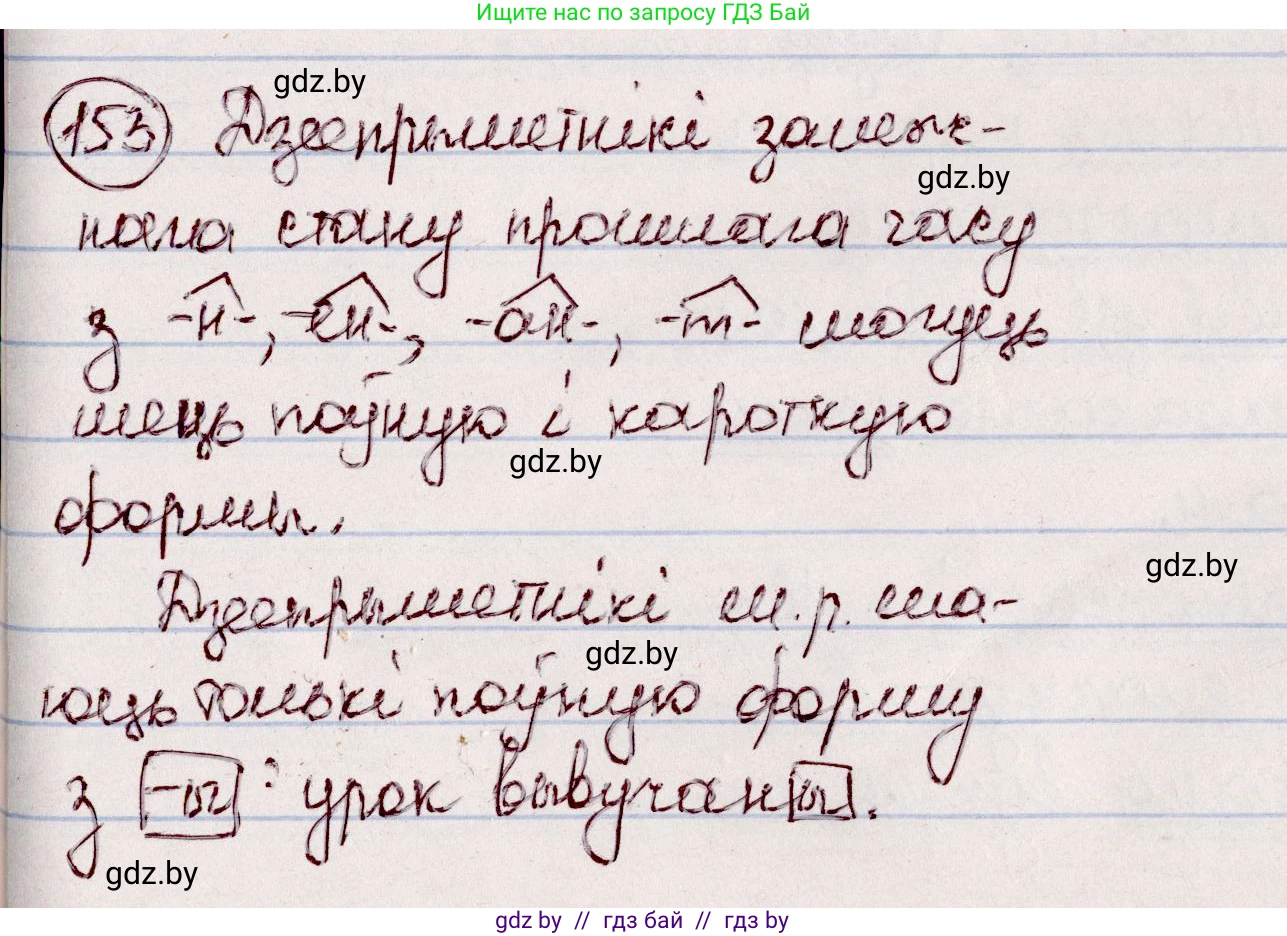 Ищите нас по запросу ГДЗ Бай
gdz.by
153 Дзеепрыметнікі залеж-
gdz.by
нага стану прошлага часу
з -н-, -ен-, -ан-, -т- могуць
мець поўную і кароткую
gdz.by
формы.
gdz.by
Дзеепрыметнікі м.р. ма-
gdz.by
юць толькі поўную форму
з -ы: урок вывучаны.
gdz.by
gdz.by // гдз бай // гдз by